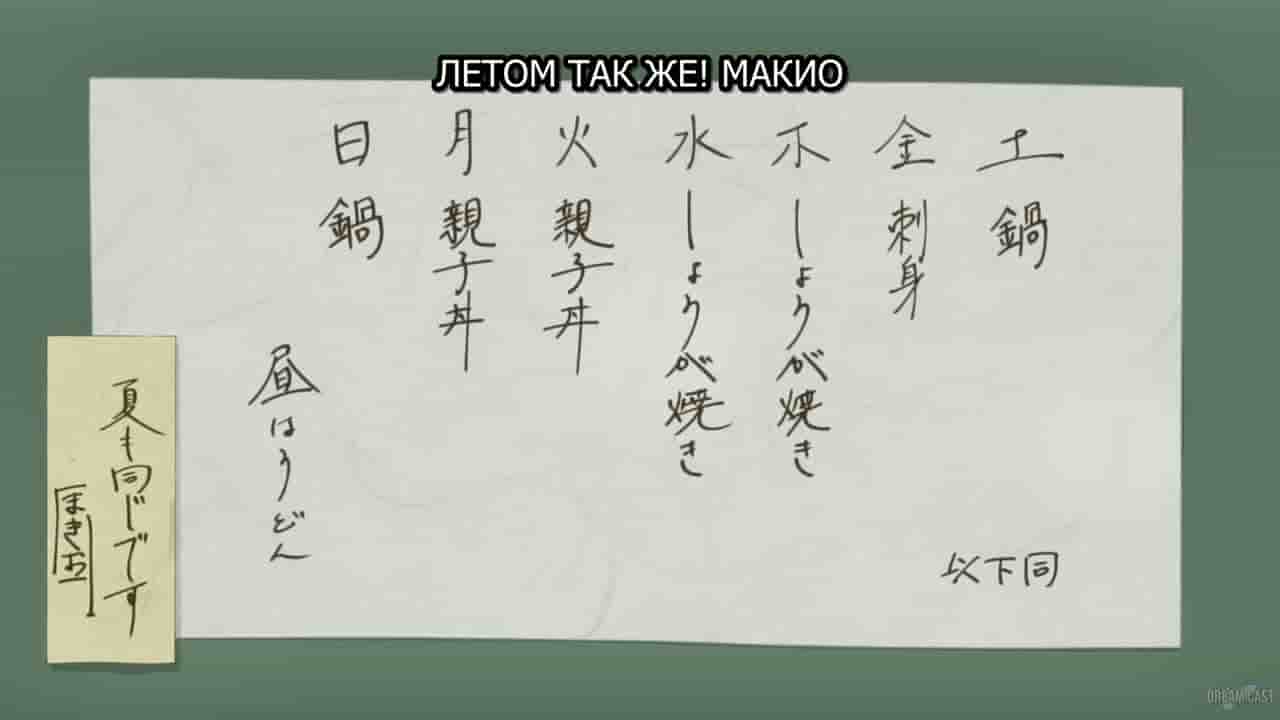 ЛЕТОМ ТАК ЖЕ! МАКИО
日 鍋
月 親子丼
火 親子丼
水 しょうが焼き
木 しょうが焼き
金 刺身
土 鍋
昼はうどん
以下同
夏も同じです
「まきお」
DREAM CAST